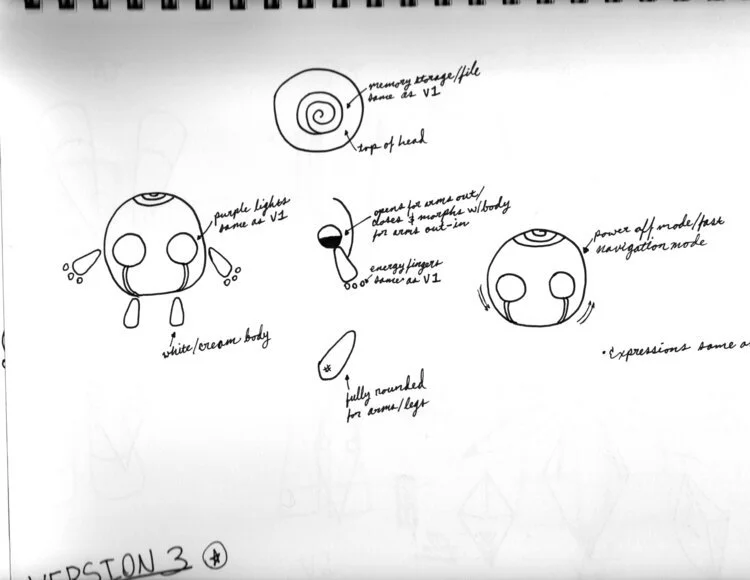 memory storage/file
same as V1
top of head
purple lights
same as V1
opens for arms out/
closes & morphs w/body
for arms out-in
power off mode/fast
navigation mode
energy fingers
same as V1
white/cream body
• Expressions same
fully rounded
for arms/legs
VERSION 3